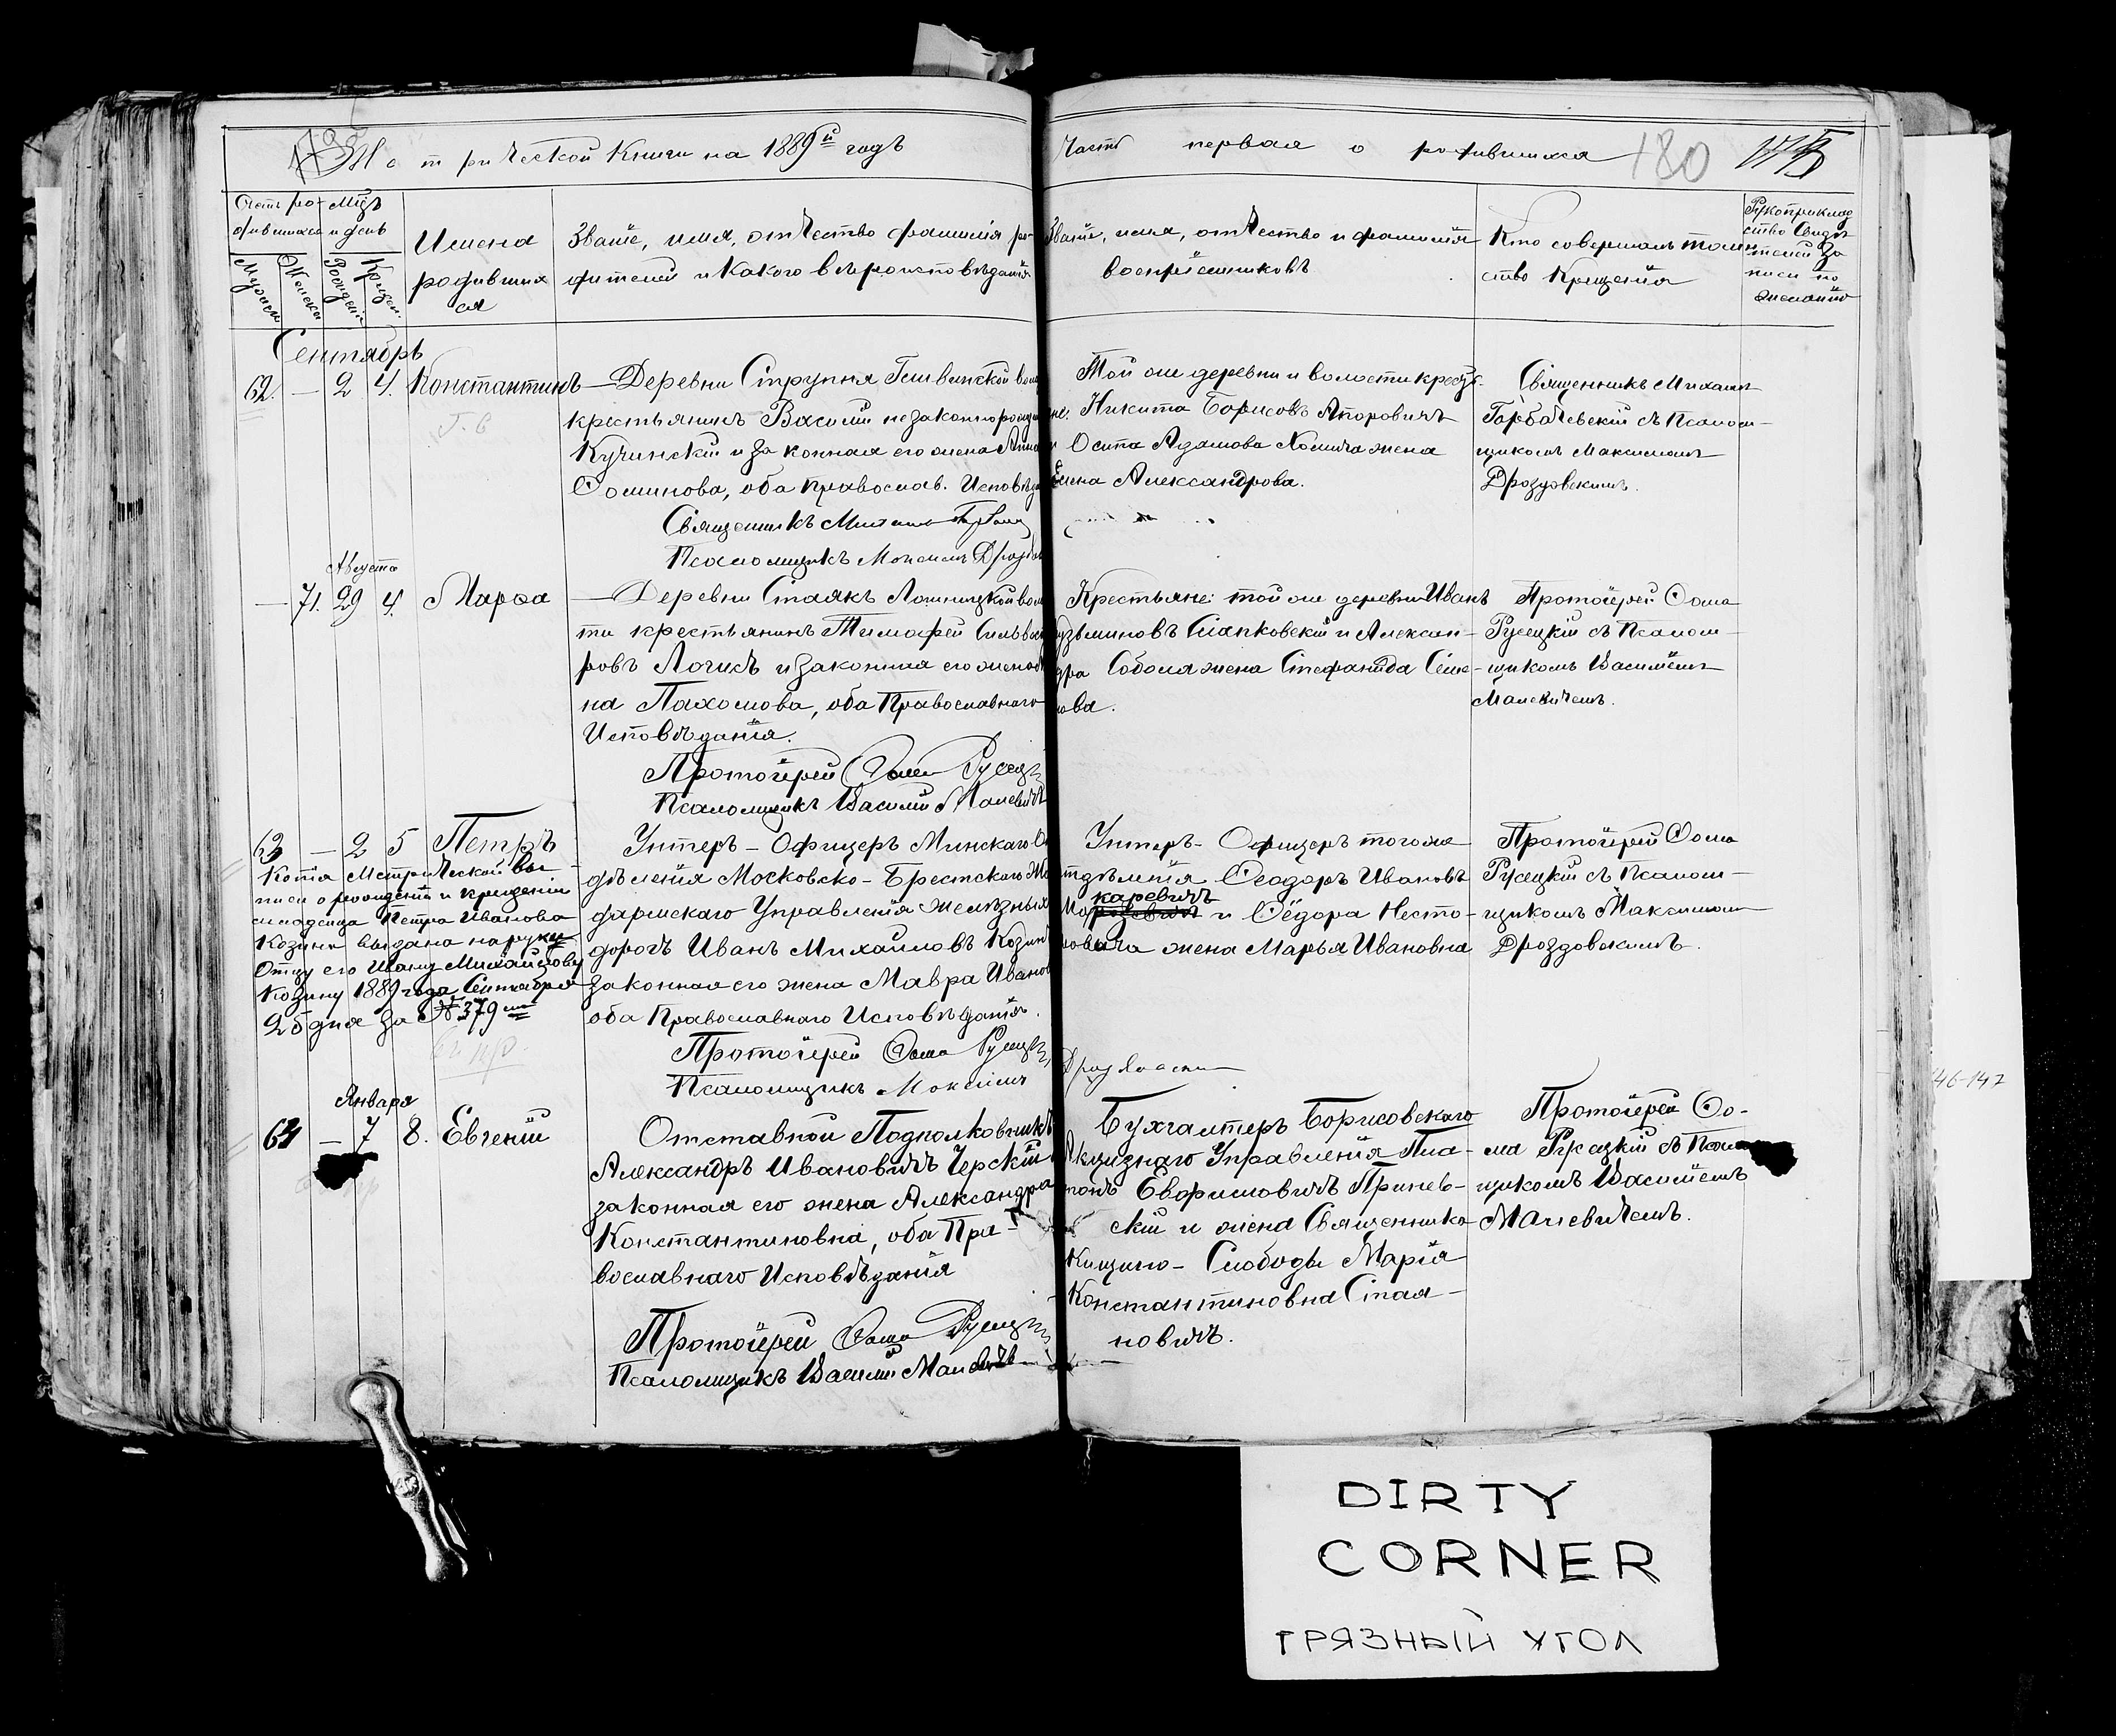 Метрической Книги на 1889й годъ
Часть первая о родившихся 180
Счетъ ро-
дившихся
Мцъ
и день
Мужеска
Женска
Рожденiя
Крещен.
Имена
родивших
ся
Званiе, имя, отчество фамилiя ро-
дителей и какого вѣроисповѣданiя
Званiе, имя, отчество и фамилiя
воспрiемниковъ
Кто совершалъ таин
ство Крещенiя
Рукоприклад
ство Свидѣ
телей за
писи по
желанiю
Сентябрь
62. — 2 4. Константинъ
— Деревни Струпня
крестьянинъ Василiй незаконнорожд
Кучинскiй и законная его жена Анна
Фоминова, оба православ. Исповѣда
Священникъ Михаилъ
Псаломщикъ Максимъ Дроздов
Той же деревни и волости крест.
Никита Борисовъ Апоровичъ
Осипа Адамова Хомича жена
Елена Александрова.
Священникъ Михаилъ
Горбачевскiй съ Псалом-
щикомъ Максимомъ
Дроздовскимъ.
Августа
— 71. 29 4. Марѳа
— Деревни Стаякъ Лошницкой вол
ти крестьянинъ Тимофей Сильвест
ровъ Логинъ и законная его жена
на Пахомова, оба Православнаго
Исповѣданiя.
Протоiерей Ѳома Русецк
Псаломщикъ Василiй Малевичъ
Крестьяне: той же деревни Иванъ
Кузьминовъ Слапковскiй и Алексан-
дра Соболя жена Стефанида Семе-
нова.
Протоiерей Ѳома
Русецкiй съ Псалом-
щикомъ Василiемъ
Малевичемъ.
63 — 2 5 Петръ
Копiя Метрической за-
писи о рожденiи и крещенiи
младенца Петра Иванова
Козина выдана на руки
Отцу его Ивану Михайлову
Козину 1889 года Сентября
26 дня за № 379мъ
Унтеръ-Офицеръ Минскаго От
дѣленiя Московско-Брестскаго Жан
дармскаго Управленiя желѣзныхъ
дорогъ Иванъ Михаиловъ Козинъ
законная его жена Мавра Иванов
оба Православнаго Исповѣданiя.
Протоiерей Ѳома Русецк
Псаломщикъ Максимъ
Дроздовскiй
Унтеръ-Офицеръ того же
отдѣленiя Ѳеодоръ Ивановъ
каревичъ
Морозевичъ и Ѳёдора Несто-
ровича жена Марья Ивановна
Протоiерей Ѳома
Русецкiй съ Псалом-
щикомъ Максимом
Дроздовскимъ.
Января
64 — 7 8. Евгенiй
Отставной Подполковникъ
Александръ Ивановичъ Черскiй
законная его жена Александра
Константиновна, оба Пра-
вославнаго Исповѣданiя
Протоiерей Ѳома Русецк
Псаломщикъ Василiй Малевичъ
Бухгалтеръ Борисовскаго
Акцизнаго Управленiя Пла-
тонъ Евфимовичъ Принев-
скiй и жена Священника
Кищино-Слободы Марiя
Константиновна Стая-
новичъ.
Протоiерей Ѳо-
ма Русецкiй съ Псалом
щикомъ Василiемъ
Малевичемъ.
146-147
DIRTY
CORNER
ГРЯЗНЫЙ УГОЛ